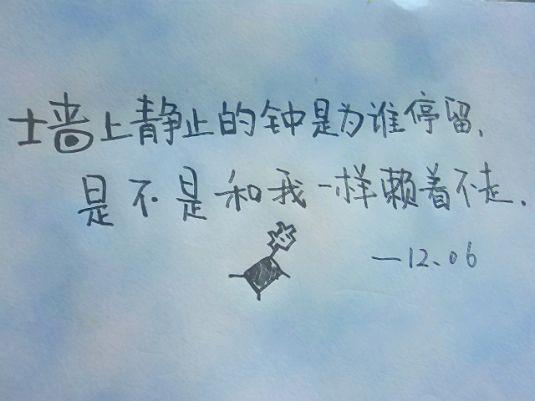 墙上静止的钟是为谁停留.
是不是和我一样赖着不走.
—12.06